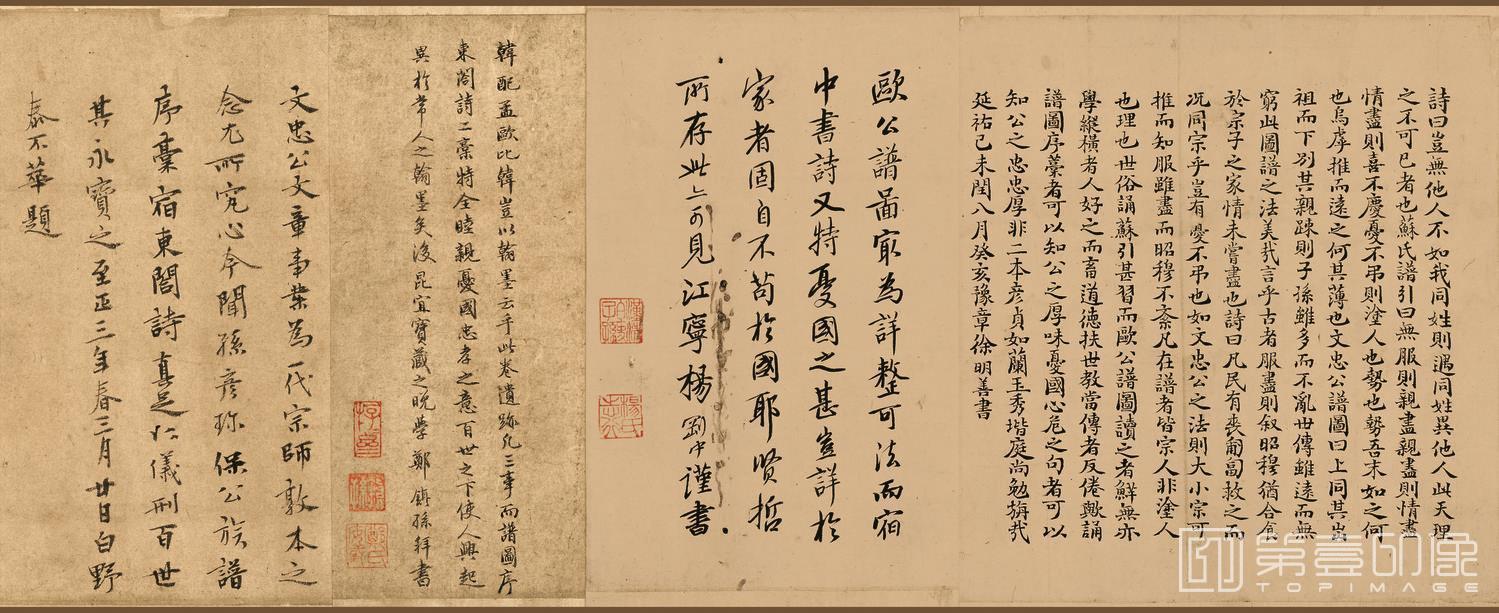 詩曰豈無他人不如我同姓則遇同姓異他人此天理
之不可已者也蘇氏譜引曰無服則親盡親盡則情盡
情盡則喜不慶憂不弔則塗人也勢也勢吾末如之何
也烏虖推而遠之何其薄也文忠公譜圖曰上同其出
祖而下別其親踈則子孫雖多而不亂世傳雖遠而無
窮此圖譜之法美哉言乎古者服盡則叙昭穆猶合食
於宗子之家情未嘗盡也詩曰凡民有喪匍匐救之而
况同宗乎豈有憂不弔也如文忠公之法則大小宗可
推而知服雖盡而昭穆不紊凡在譜者皆宗人非塗人
也理也世俗誦蘇引甚習而歐公譜圖讀之者鮮無亦
學縱橫者人好之而畜道德扶世教當傳者反倦歟誦
譜圖序藁者可以知公之厚味憂國心危之句者可以
知公之忠忠厚非二本彦貞如蘭玉秀堦庭尚勉旃哉
延祐己未閏八月癸亥豫章徐明善書
歐公譜啚冣為詳整可法而宿
中書詩又特憂國之甚豈詳於
家者固自不苟於國耶賢哲
所存此亦可見江寧楊剛中謹書
韓配孟歐比韓豈以翰墨云乎此卷遺跡凡三事而譜圖序
東閤詩二藁特全睦親憂國忠孝之意百世之下使人興起
異於常人之翰墨矣後昆宜寶藏之晚學鄭鎮孫拜書
文忠公文章事業為一代宗師敦本之
念尤所究心今聞孫彦珎保公族譜
序藁宿東閤詩真足以儀刑百世
其永寶之至正三年春三月廿日白野
泰不華題
楊氏
鄭氏
第壹印像
TOPIMAGE